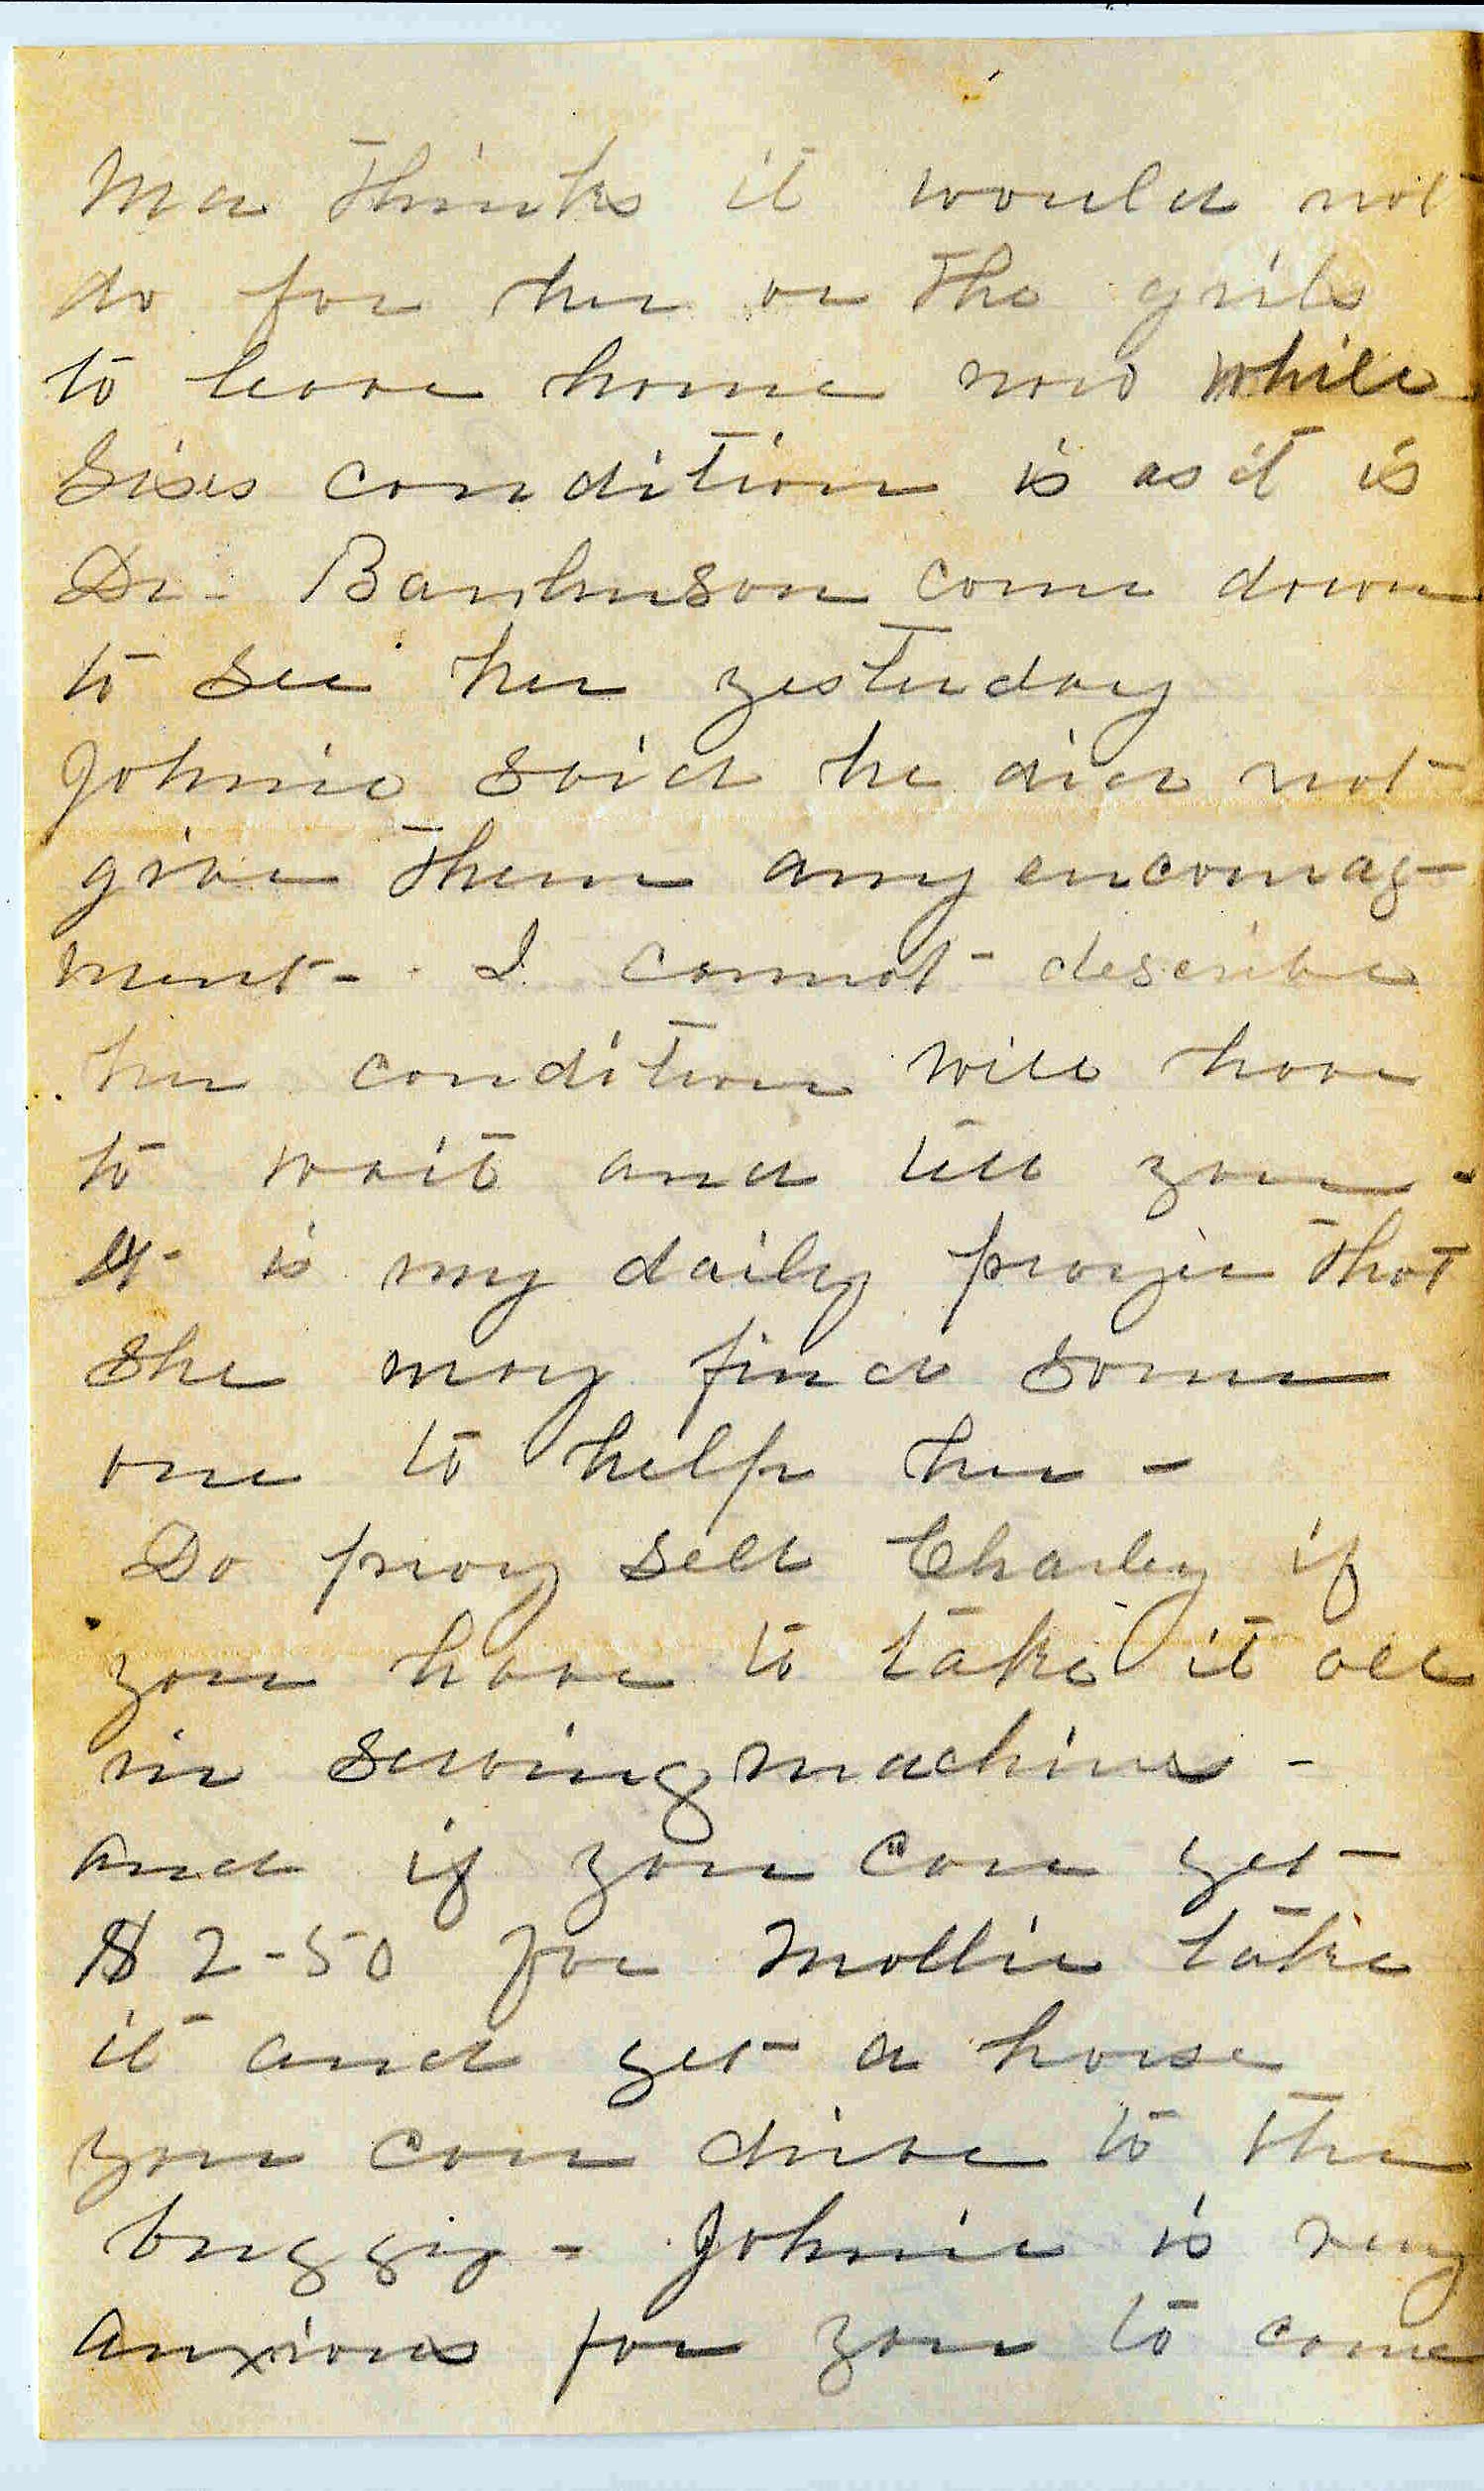 Ma thinks it would not
do for her or the girls
to leave home now while
Sises condition is as it is
Dr - come down
to see her yesterday
Johnie said he did not
give them any encourag-
ment - I cannot describe
her condition will have
to wait and tell you -
It is my daily prayer that
she may find some
one to help her -
Do pray sell Charley if
you have to take it all
in sewing machines -
and if you can get
$ 2-50 for Mollie take
it and get a horse
you can drive to the
buggy - Johnie is very
anxious for you to come